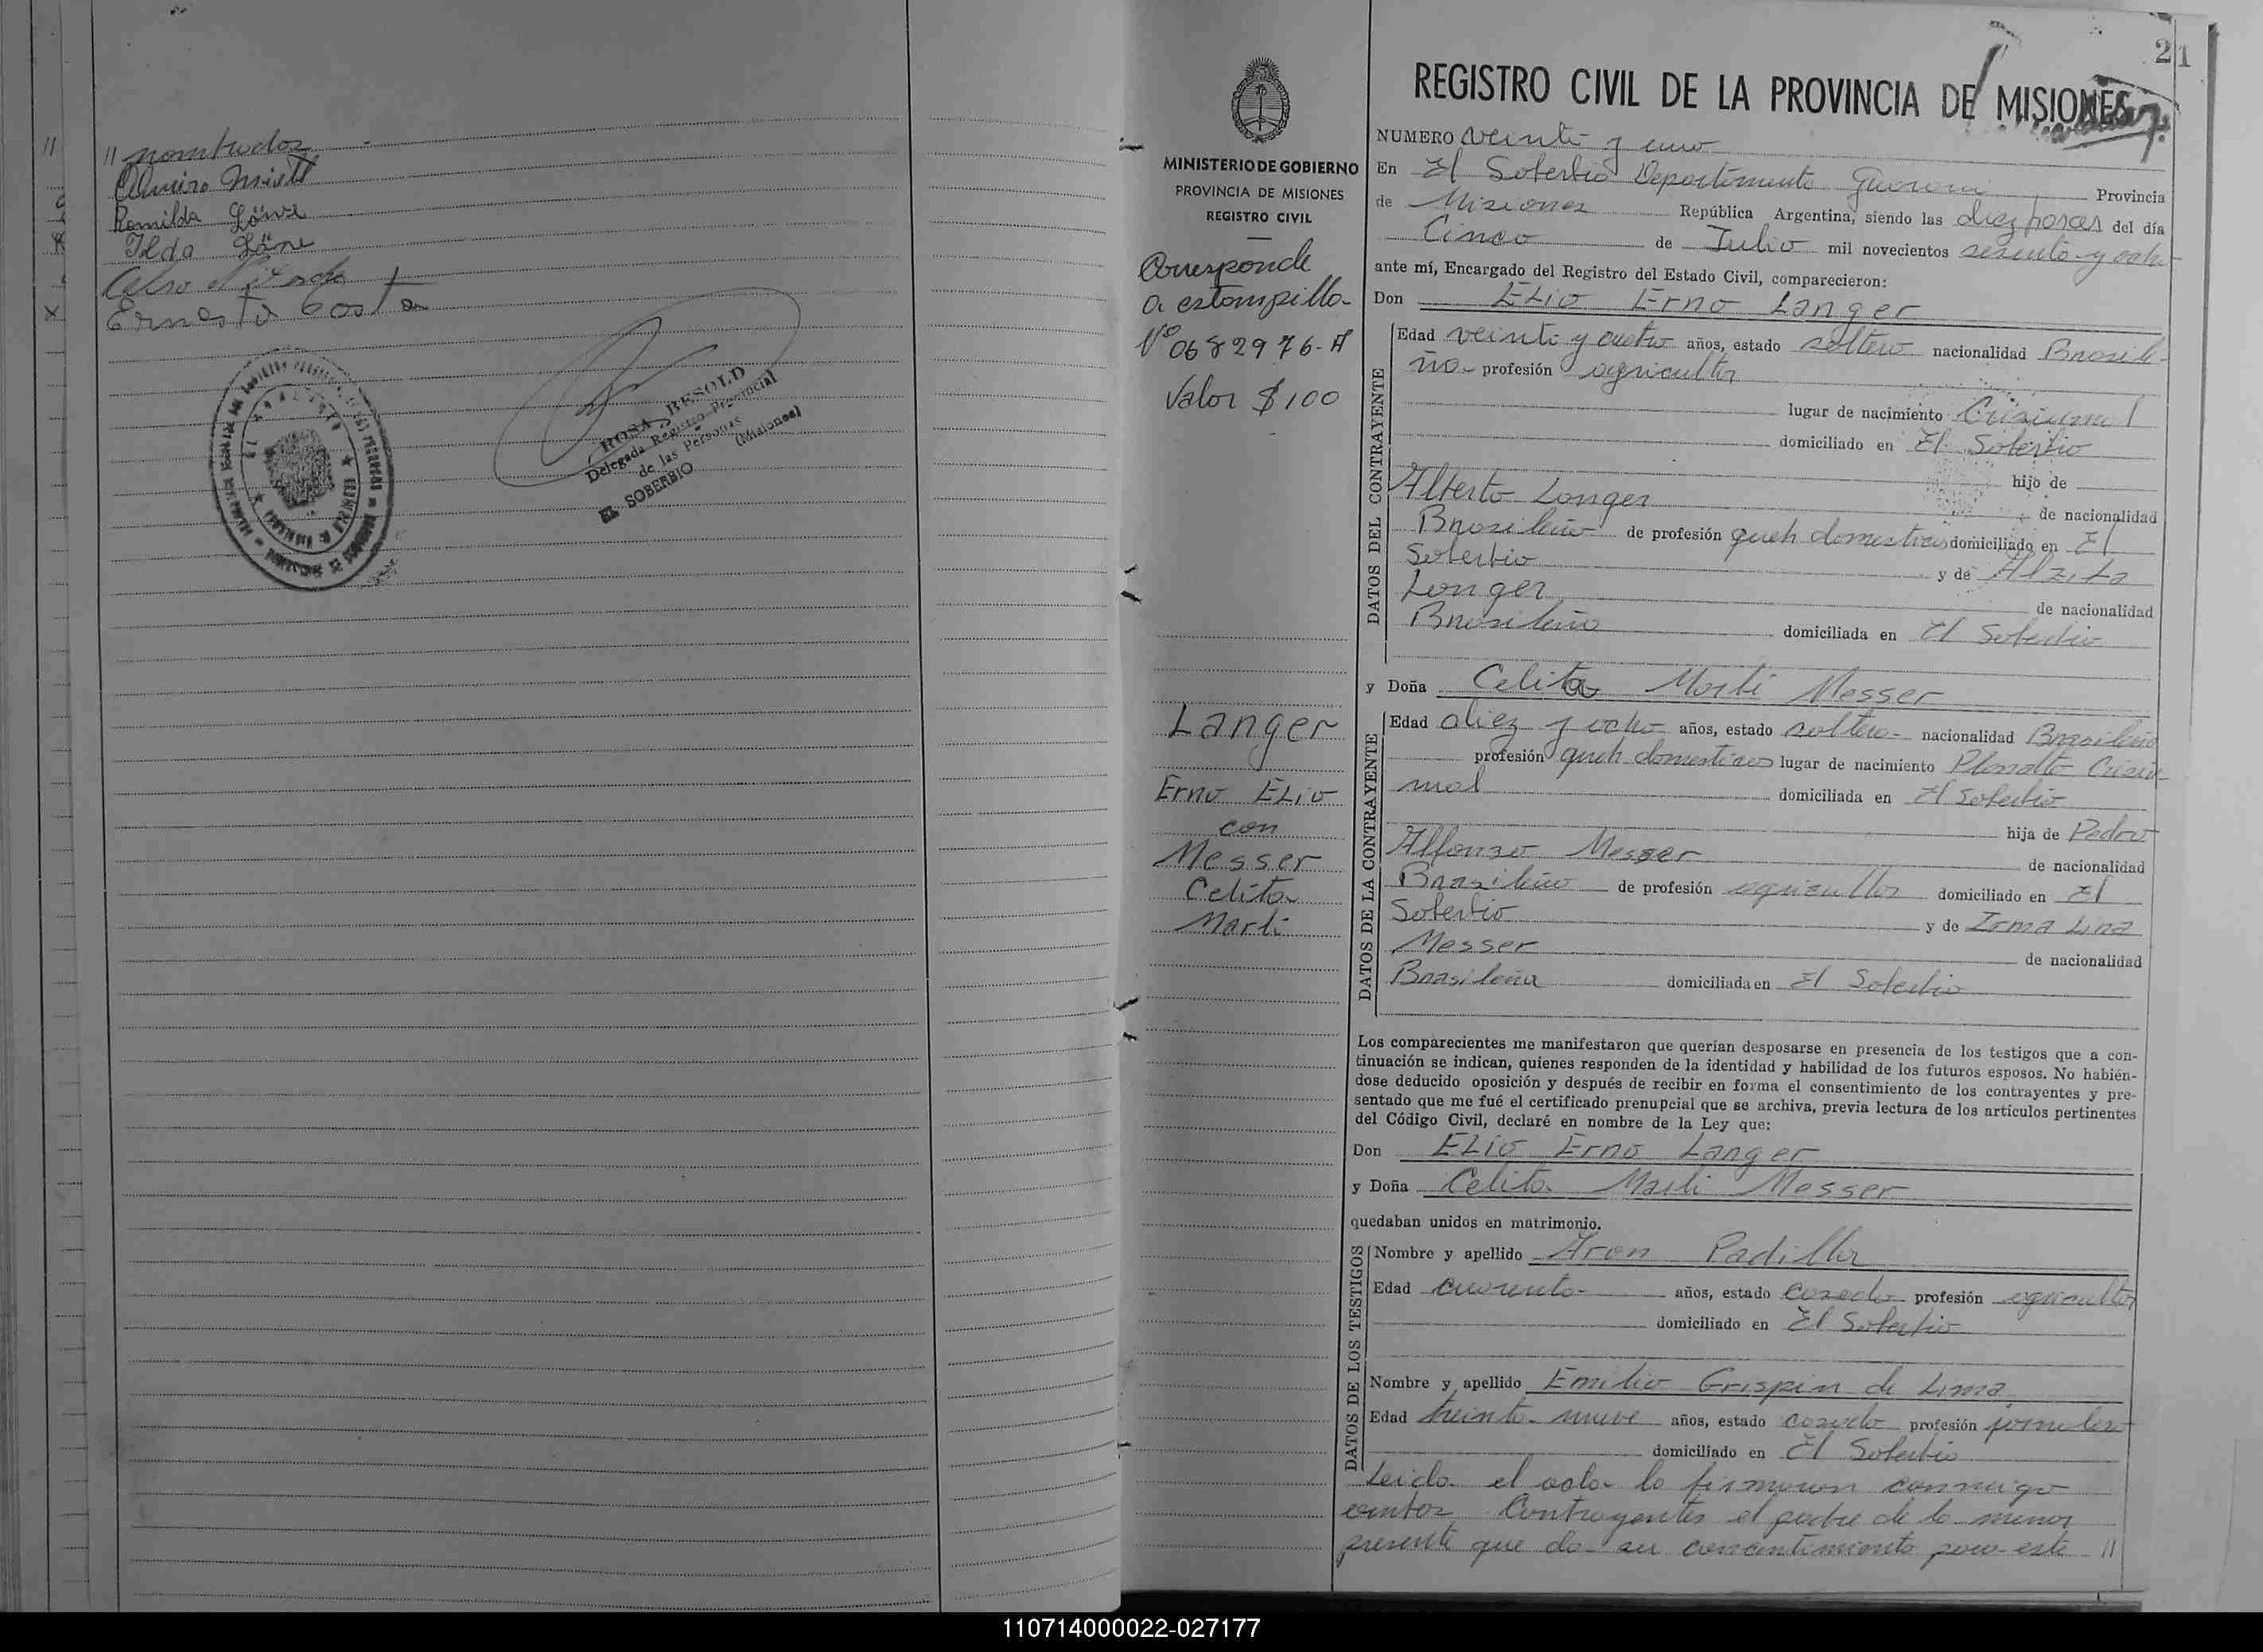 // nombrados
Romilda Löwe
Ilda Löne
Ernesto Costa
ROSA J. BESOLD
Delegada Registro Provincial
de las Personas
EL SOBERBIO (Misiones)
21
MINISTERIO DE GOBIERNO
PROVINCIA DE MISIONES
REGISTRO CIVIL
Corresponde
a estampilla
Nº 0682976-A
Valor $ 100
Langer
Erno Elio
con
Messer
Celita
Marli
REGISTRO CIVIL DE LA PROVINCIA DE MISIONES
NUMERO veinte y uno
En El Soberbio Departamento Guarani Provincia
de Misiones República Argentina, siendo las diez horas del día
Cinco de Julio mil novecientos sesenta y ocho
ante mí, Encargado del Registro del Estado Civil, comparecieron:
Don Elio Erno Langer
DATOS DEL CONTRAYENTE
Edad veinte y cuatro años, estado soltero nacionalidad Brasile-
ña profesión agricultor
lugar de nacimiento Crisiumal
domiciliado en El Soberbio
hijo de
Alberto Langer de nacionalidad
Brasileño de profesión queh domesticos domiciliado en El
Soberbio y de Alzita
Langer de nacionalidad
Brasileña domiciliada en El Soberbio
y Doña Celita Marli Messer
DATOS DE LA CONTRAYENTE
Edad diez y ocho años, estado soltera nacionalidad Brasileña
profesión queh domesticos lugar de nacimiento Planalto Crisiu-
mal domiciliada en El Soberbio
hija de Pedro
Alfonso Messer de nacionalidad
Brasileño de profesión agricultor domiciliado en El
Soberbio y de Irma Lina
Messer de nacionalidad
Brasileña domiciliada en El Soberbio
Los comparecientes me manifestaron que querían desposarse en presencia de los testigos que a con-
tinuación se indican, quienes responden de la identidad y habilidad de los futuros esposos. No habién-
dose deducido oposición y después de recibir en forma el consentimiento de los contrayentes y pre-
sentado que me fué el certificado prenupcial que se archiva, previa lectura de los artículos pertinentes
del Código Civil, declaré en nombre de la Ley que:
Don Elio Erno Langer
y Doña Celita Marli Messer
quedaban unidos en matrimonio.
DATOS DE LOS TESTIGOS
Nombre y apellido Aron Padilla
Edad cuarenta años, estado casado profesión agricultor
domiciliado en El Soberbio
Nombre y apellido Emilio Crispin de Lima
Edad treinta nueve años, estado casado profesión jornalero
domiciliado en El Soberbio
Leida el acta la firmaron conmigo
ambos Contrayentes el padre de la menor
presente que da su concentimiento para este //
110714000022-027177